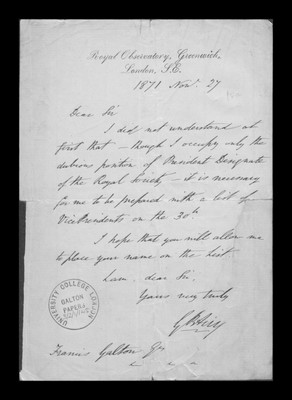 Royal Observatory, Greenwich,
London, S.E.
1871 Nov. 27
Dear Sir
I did not understand at
first that – though I occupy only the
dubious position of President Designate
of the Royal Society – it is necessary
for me to be prepared with a list for
Vice Presidents on the 30th
I hope that you will allow me
to place your name on the list
I am, dear Sir,
Yours very truly
G B Airy
Francis Galton Esq
UNIVERSITY COLLEGE LONDON
GALTON
PAPERS